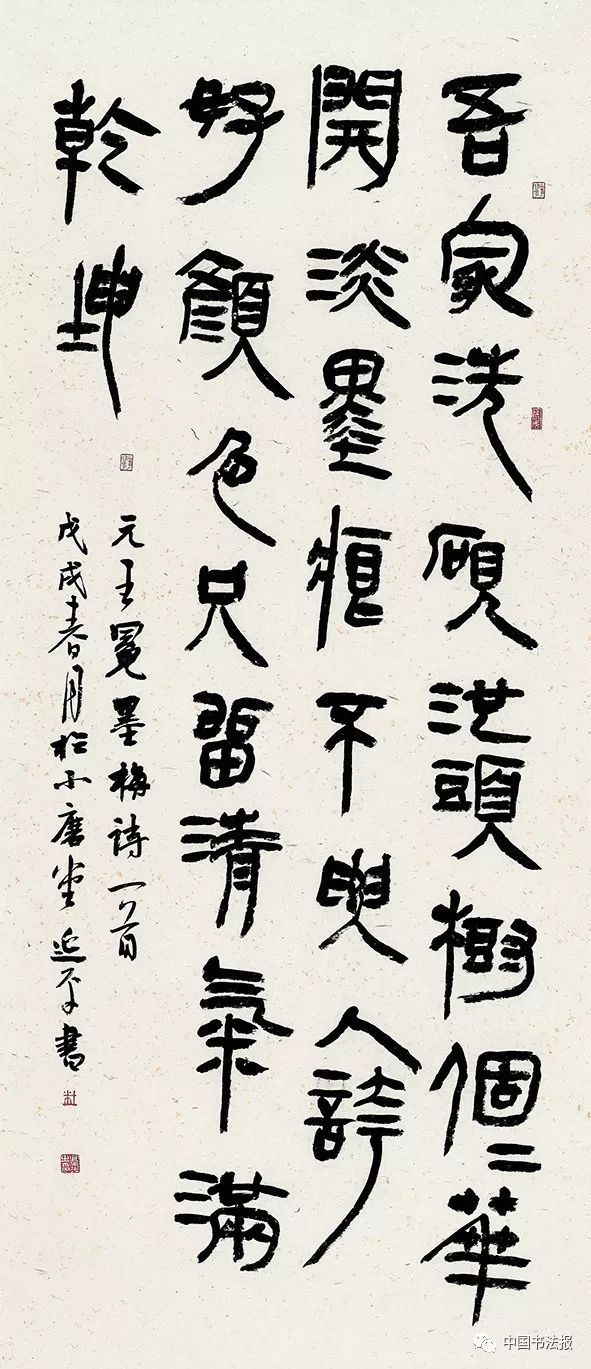 吾家洗硯池頭樹個々華
開淡墨痕不要人誇
好顏色只留清氣滿
乾坤
元王冕墨梅詩一首
戊戌春月於小堂書
中国书法报